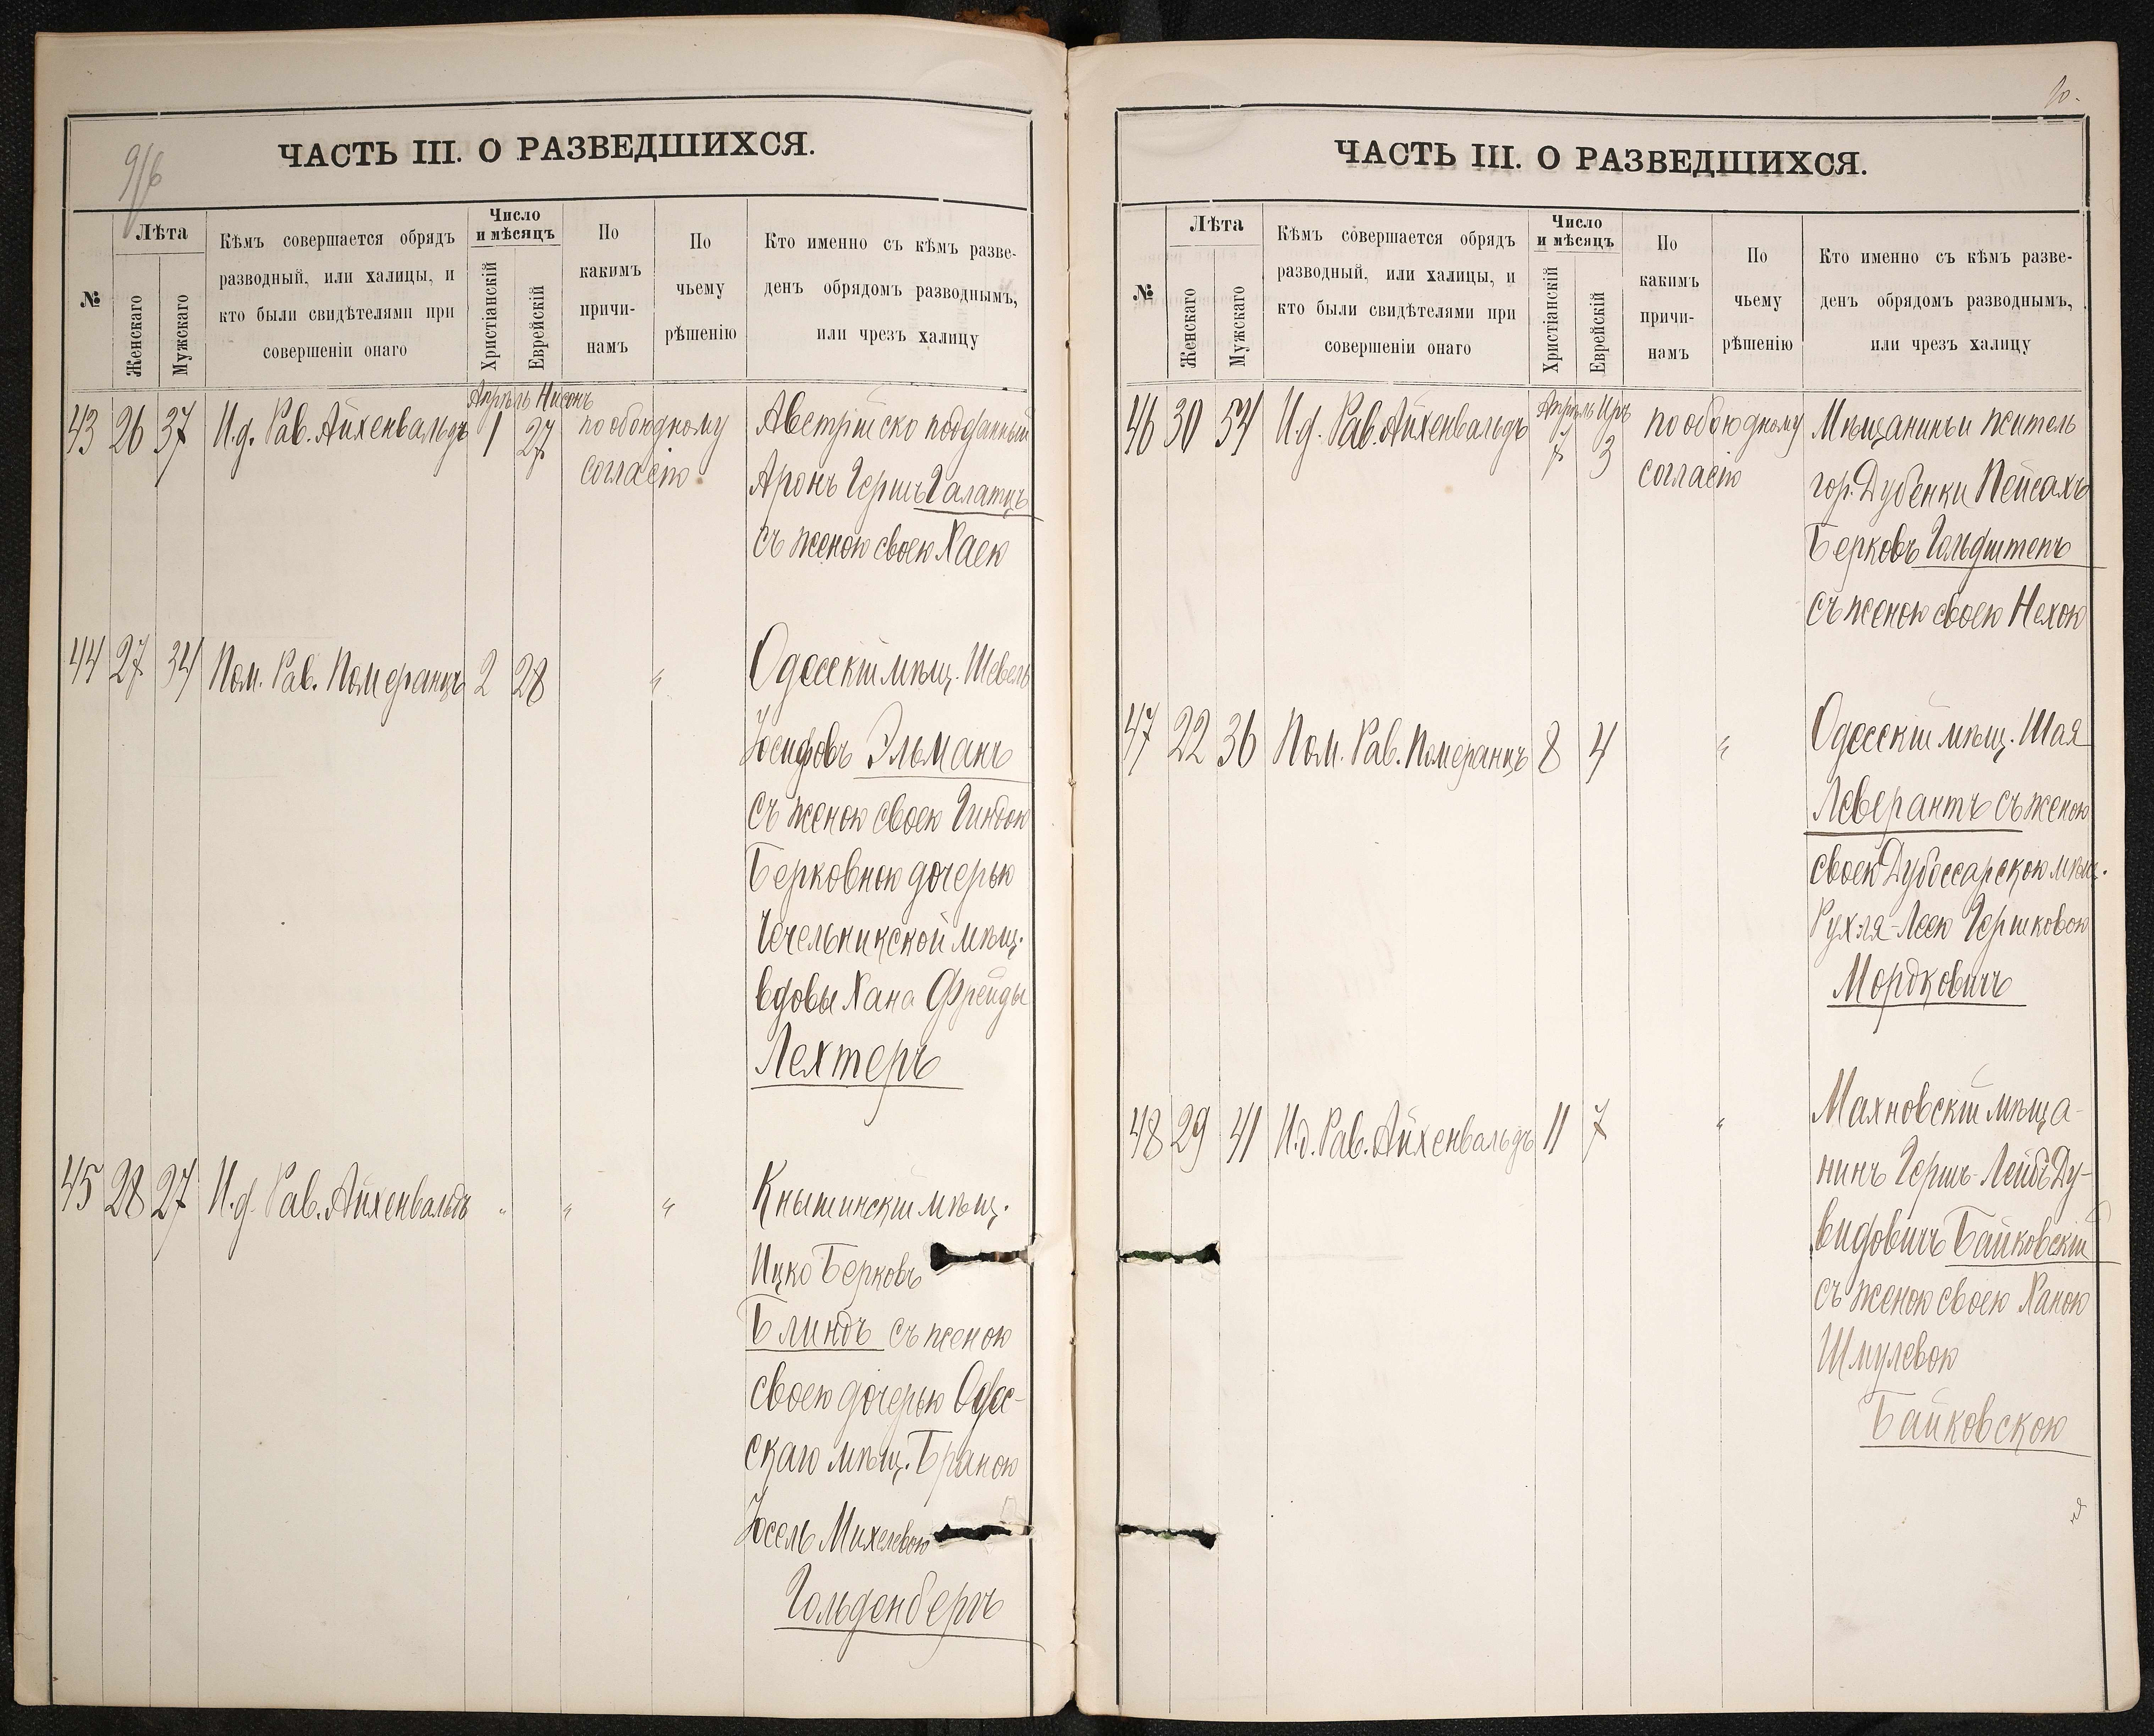 9/6
ЧАСТЬ III. О РАЗВЕДШИХСЯ.
№
Лѣта
Женскаго
Мужскаго
Кѣмъ совершается обрядъ
разводный, или халицы, и
кто были свидѣтелями при
совершеніи онаго
Число
и мѣсяцъ
Христіанскій
Еврейскій
По
какимъ
причи-
намъ
По
чьему
рѣшенію
Кто именно съ кѣмъ разве-
денъ обрядомъ разводнымъ,
или чрезъ халицу
Апрѣль Нисонъ
43 26 37 И.д. Рав. Айхенвальдъ 1 27 по обоюдному Австрійско подданный
согласію Аронъ Гершъ Галатцъ
съ женою своею Хаею
44 27 34 Пом. Рав. Померанцъ 2 28 " Одесскій мѣщ. Шевель
Іосифовъ Эльманъ
съ женою своею Гиндою
Берковною дочерью
Чечельникской мѣщ.
вдовы Хана Фрейды
Лехтеръ
45 28 27 И.д. Рав. Айхенвальдъ " " " Кнышинскій мѣщ.
Ицко Берковъ
Блиндъ съ женою
своею дочерью Одес-
скаго мѣщ. Браною
Іосель Михелевою
Гольденбергъ
10.
ЧАСТЬ III. О РАЗВЕДШИХСЯ.
№
Лѣта
Женскаго
Мужскаго
Кѣмъ совершается обрядъ
разводный, или халицы, и
кто были свидѣтелями при
совершеніи онаго
Число
и мѣсяцъ
Христіанскій
Еврейскій
По
какимъ
причи-
намъ
По
чьему
рѣшенію
Кто именно съ кѣмъ разве-
денъ обрядомъ разводнымъ,
или чрезъ халицу
Апрѣль Iръ
46 30 54 И.д. Рав. Айхенвальдъ 7 3 по обоюдному Мѣщанинъ и житель
согласію гор. Дубенки Пейсахъ
Берковъ Гольдштенъ
съ женою своею Нехою
47 22 36 Пом. Рав. Померанцъ 8 4 " Одесскій мѣщ. Шая
Леверантъ съ женою
своею Дубоссарскою мѣщ.
Рухля-Леею Гершковою
Мордковичъ
48 29 41 И.д. Рав. Айхенвальдъ 11 7 " Махновскій мѣща-
нинъ Гершъ-Лейбъ Ду-
видовичъ Байковскій
съ женою своею Ханою
Шмулевою
Байковскою